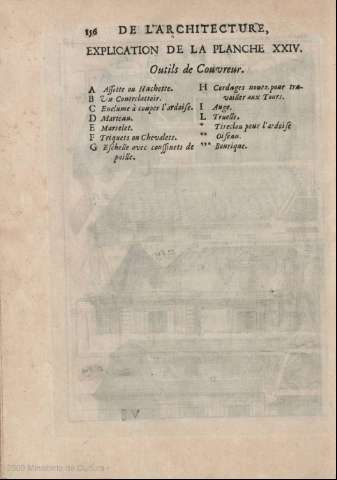 156 DE L'ARCHITECTURE,
EXPLICATION DE LA PLANCHE XXIV.
Outils de Couvreur.
A Assette ou Hachette.
B Un Contrelattoir.
C Enclume à couper l'ardoise.
D Marteau.
E Martelet.
F Triquets ou Chevalets.
G Eschelle avec coussinets de
paille.
H Cordages nouez pour tra-
vailler aux Tours.
I Auge.
L Truelle.
* Tireclou pour l'ardoise
** Oiseau.
*** Bourique.
2009 Ministerio de Cultura